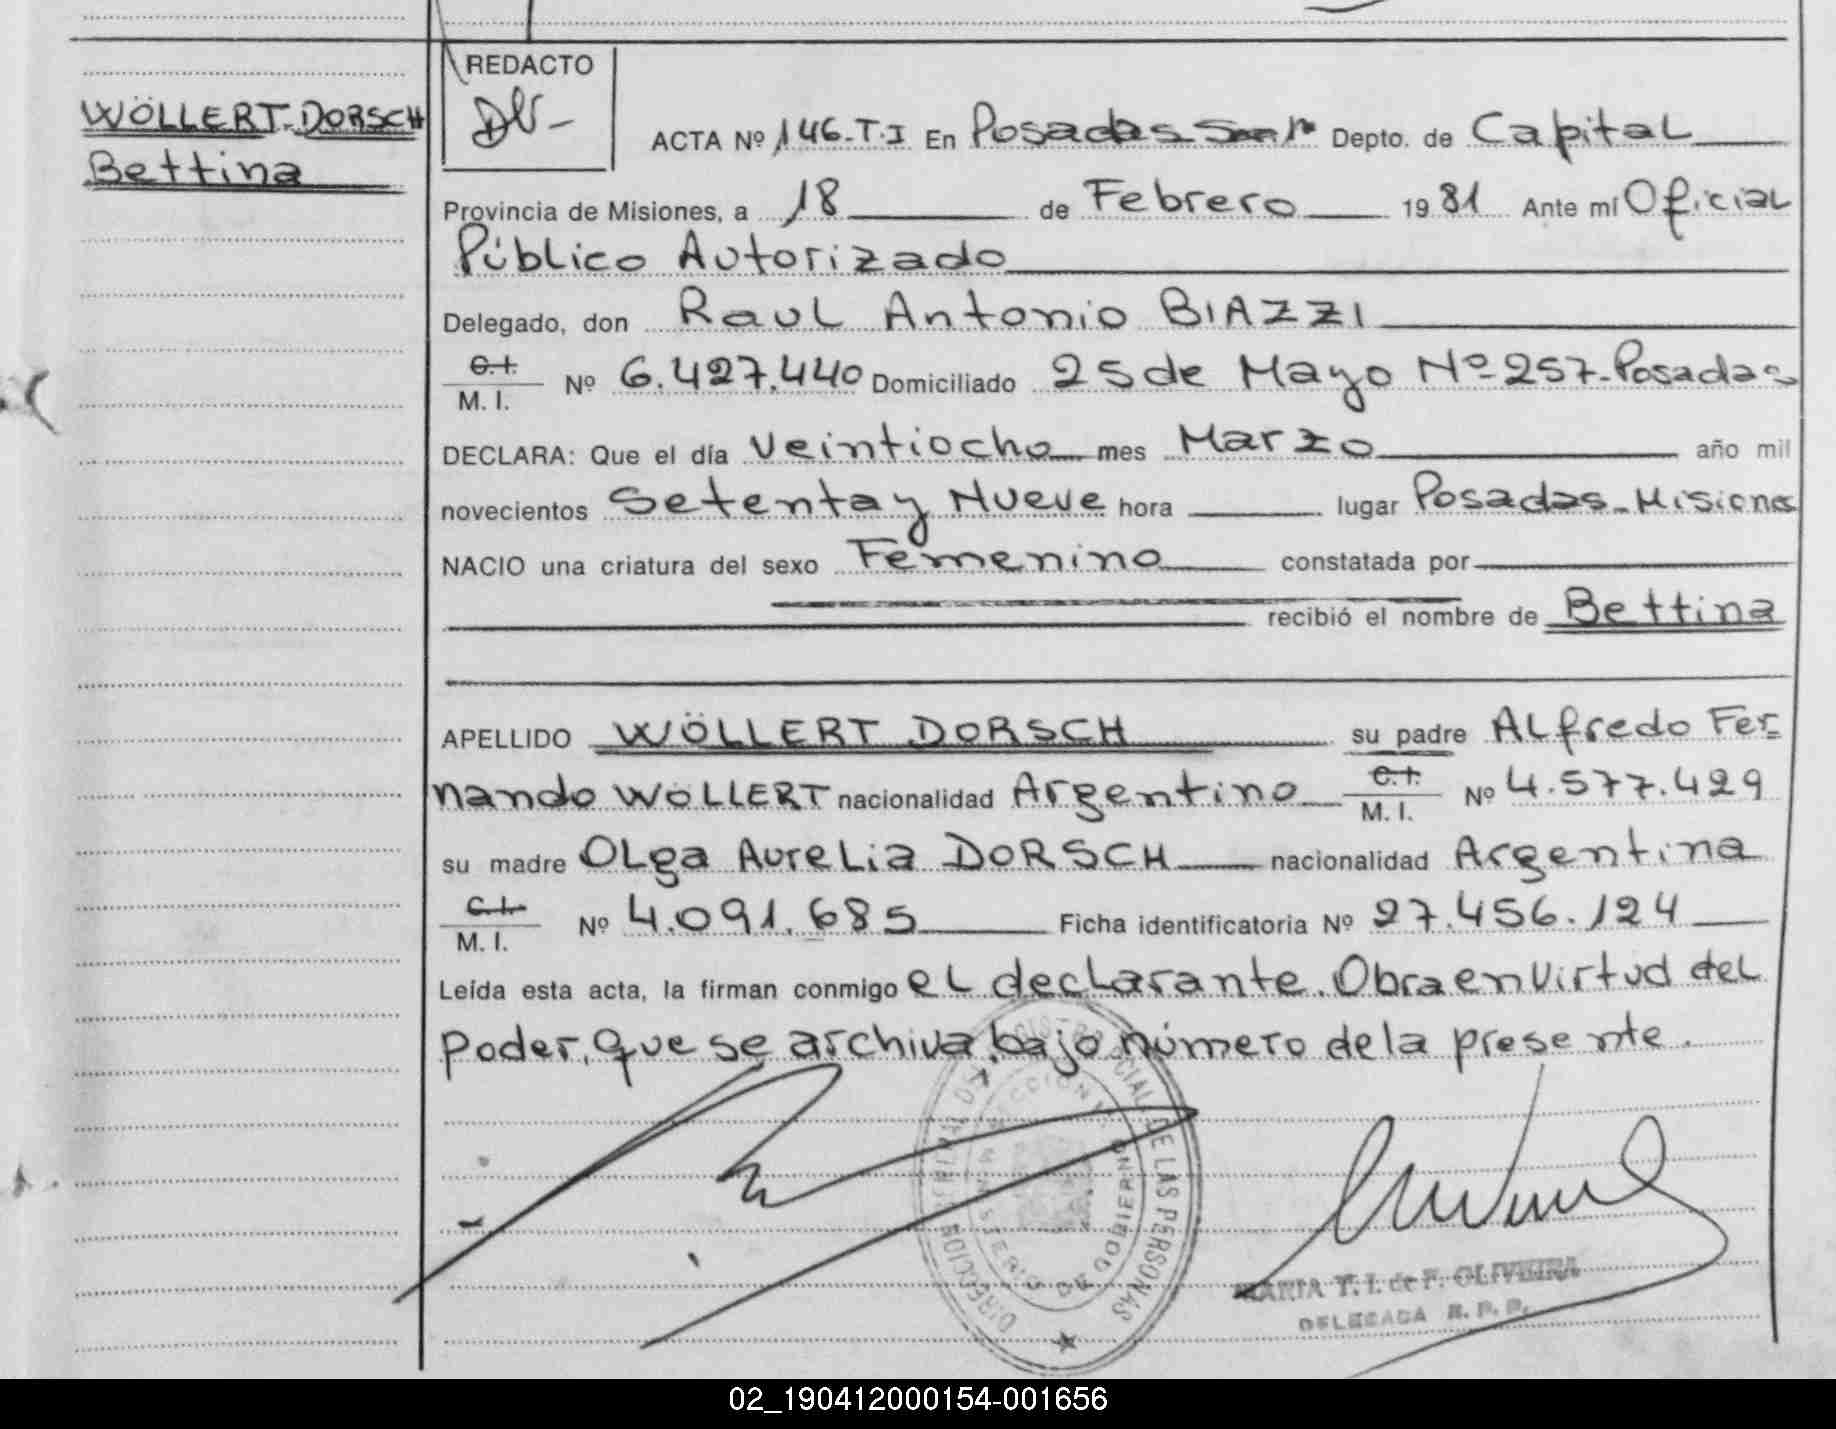 WÖLLERT DORSCH
Bettina
REDACTO
ACTA Nº 146-T.I En Posadas Depto. de Capital
Provincia de Misiones, a 18 de Febrero 1981 Ante mí Oficial
Público Autorizado
Delegado, don Raul Antonio BIAZZI
C.I.
M. I. Nº 6.427.440 Domiciliado 25 de Mayo Nº 257-Posadas
DECLARA: Que el día Veintiocho mes Marzo año mil
novecientos Setenta y Nueve hora lugar Posadas-Misiones
NACIO una criatura del sexo Femenino constatada por
recibió el nombre de Bettina
APELLIDO WÖLLERT DORSCH su padre Alfredo Fer-
nando WÖLLERT nacionalidad Argentino C.I. M. I. Nº 4.577.429
su madre Olga Aurelia DORSCH nacionalidad Argentina
C.I.
M. I. Nº 4.091.685 Ficha identificatoria Nº 27.456.124
Leída esta acta, la firman conmigo el declarante. Obra en Virtud del
Poder, que se archiva, bajo número de la presente.
MINISTERIO DE GOBIERNO
DIRECCION DE LAS PERSONAS
MARIA T. I. de F. OLIVEIRA
DELEGADA R. P. P.
02_190412000154-001656